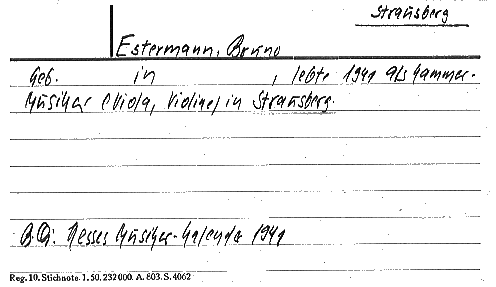 Strausberg
Estermann, Bruno
Geb. in , lebte 1941 als Kammer-
Musiker (Viola, Violine) in Strausberg.
B.Qu: Hesses Musiker-Kalender 1941
Reg. 10. Stichnote. 1. 50. 232000. A. 803. S. 4062